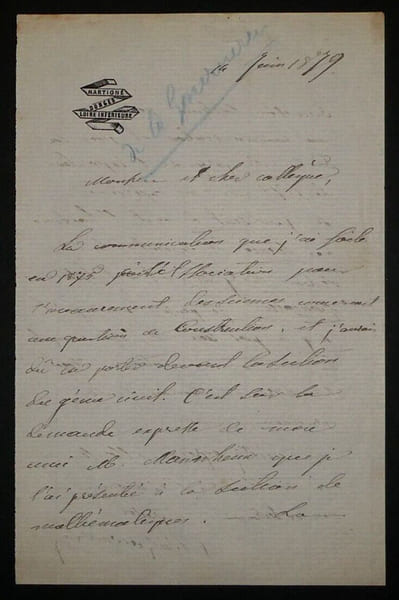 14 Juin 1879
MARTIGNÉ
LOIRE INFÉRIEURE
de la
Monsieur et cher collègue,
La communication que j'ai faite
en 1875 à l'Association pour
l'avancement des sciences concernait
une question de Construction, et j'aurais
dû la porter devant la section
du génie civil. C'est sur la
demande expresse de mon
ami M. Mannheim que je
l'ai présentée à la section de
mathématiques. La